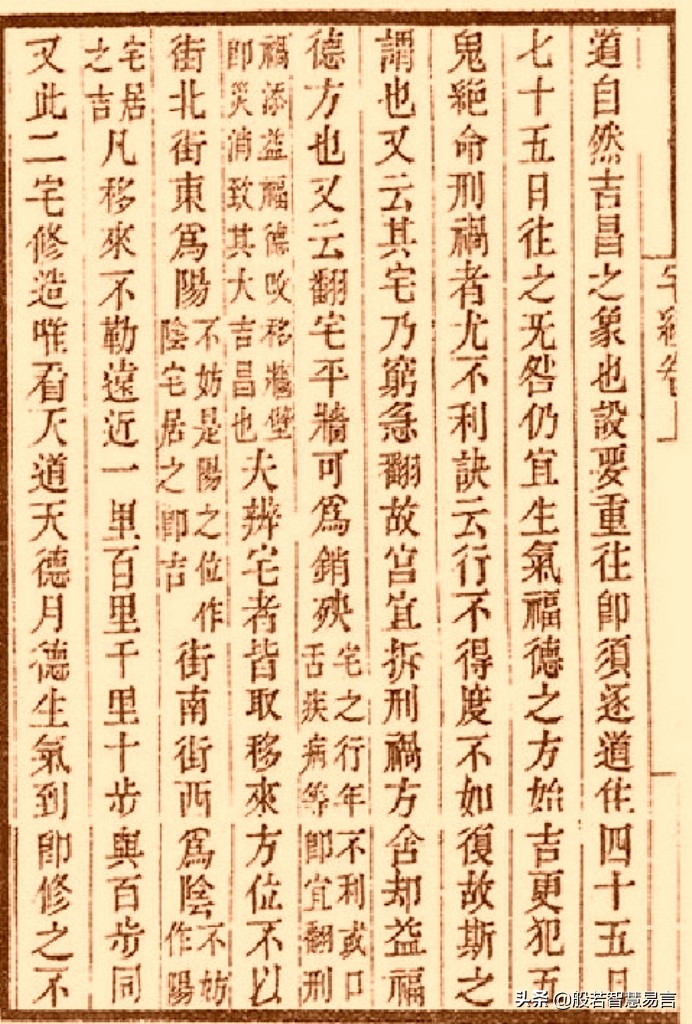 宅經卷上
道自然吉昌之象也設要重往即須逐道住四十五日
七十五日往之无咎仍宜生氣福德之方始吉更犯五
鬼絕命刑禍者尤不利訣云行不得度不如復故斯之
謂也又云其宅乃窮急翻故宫宜拆刑禍方舍却益福
德方也又云翻宅平牆可爲銷殃宅之行年不利或口舌疾病等即宜翻刑
禍添益福德改移牆壁即災消致其大吉昌也夫辨宅者皆取移來方位不以
街北街東爲陽不妨是陽之位作陰宅居之即吉街南街西爲陰不妨作陽
宅居之吉凡移來不勒遠近一里百里千里十步與百步同
又此二宅修造唯看天道天德月德生氣到即修之不
头条 @般若智慧易言